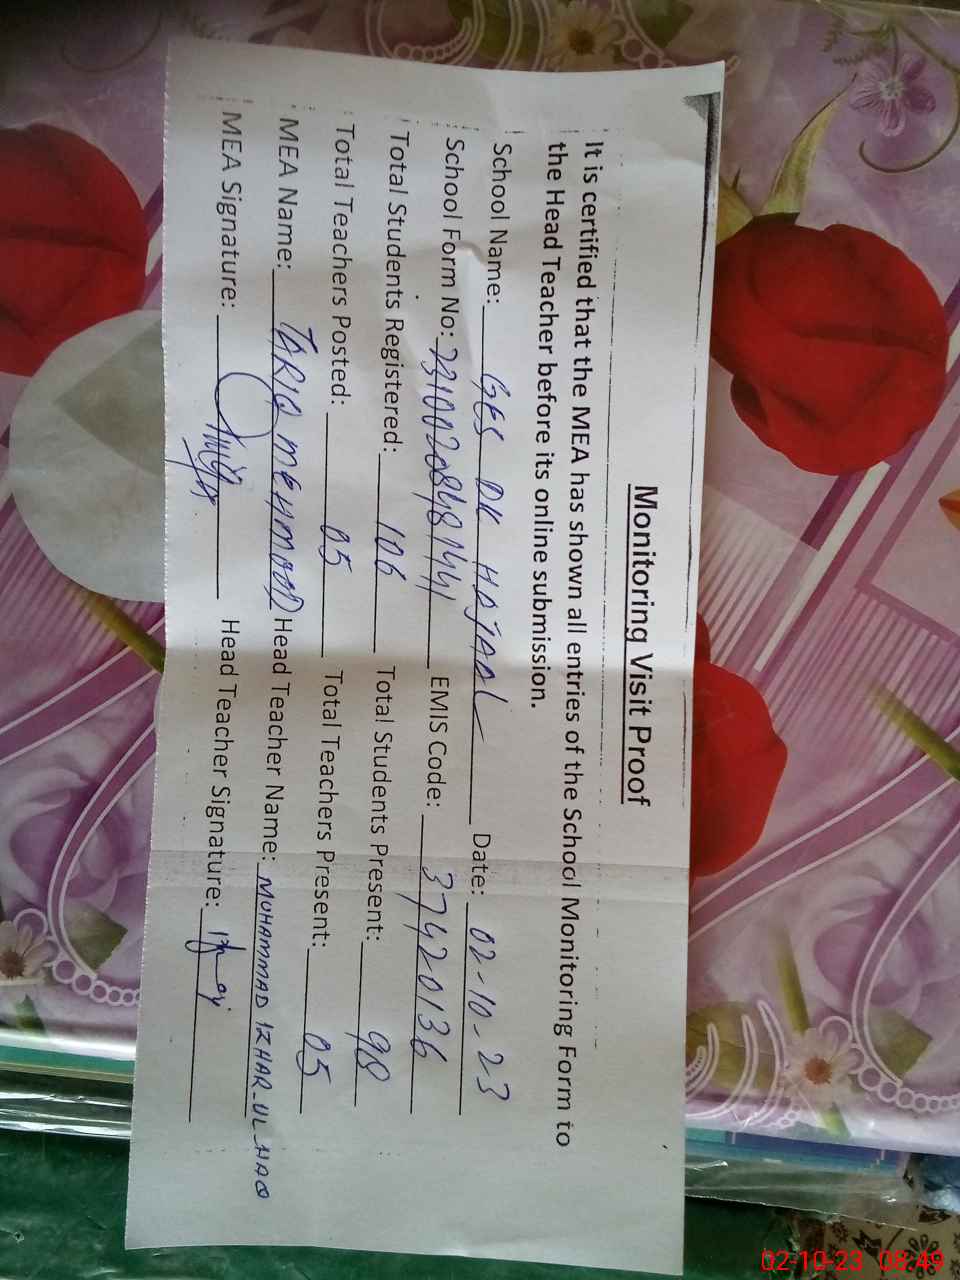 Monitoring Visit Proof
It is certified that the MEA has shown all entries of the School Monitoring Form to
the Head Teacher before its online submission.
School Name: GES DK HAJAAL Date: 02-10-23
School Form No: EMIS Code: 37420136
Total Students Registered: 106 Total Students Present: 98
Total Teachers Posted: 05 Total Teachers Present: 05
MEA Name: TARIQ MEHMOOD Head Teacher Name: MUHAMMAD IZHAR_UL_HAQ
MEA Signature: Head Teacher Signature:
02-10-23 08:49